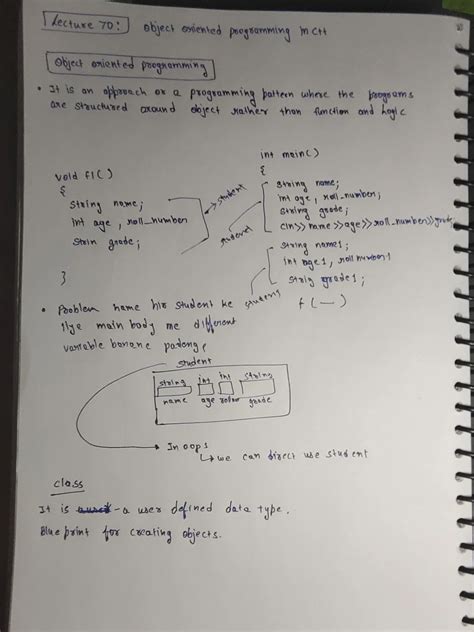 Lecture 70: Object oriented programming in C++
Object oriented programming
• It is an approach or a programming pattern where the programs
are structured around object rather than function and logic
void f1()
{
string name;
int age, roll_number
Strin grade;
}
student
int main()
{
string name;
int age, roll_number;
string grade;
cin>>name>>age>>roll_number>>grade
student
string name1;
int age1, rollnumber1
string grade1;
student1
f(—)
• Problem name hir student ke
liye main body me different
variable banane padenge
student
string int int string
name age rollno grade
→ In oops
↳ we can direct use student
class
It is - a user defined data type.
Blue print for creating objects.